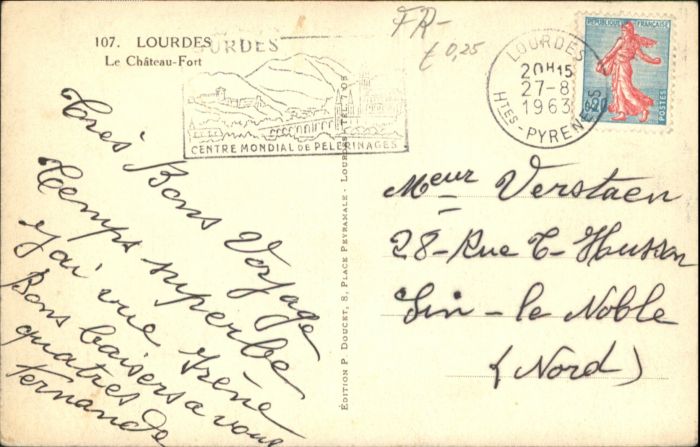 107. LOURDES
Le Château-Fort
LOURDES
CENTRE MONDIAL DE PÈLERINAGES
FR-
£ 0,25
LOURDES
20H15
27-8
1963
HTES-PYRÉNÉES
REPUBLIQUE FRANÇAISE
0,20
POSTES
Très Bons Voyage
temps superbe
j'ai vue Irène
Bons baisers a vous
quatres
Fernande
ÉDITION P. DOUCET, 8, PLACE PEYRAMALE - LOURDES - TÉL. 7.05
Meur Verstaen
28-Rue T-Husson
Sin-le Noble
(Nord)